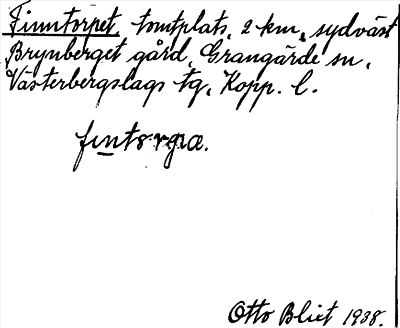 Finntorpet, tomtplats, 2 km. sydväst
Brynberget gård, Grangärde sn,
Västerbergslags tg, Kopp. l.
Otto Blixt 1938.